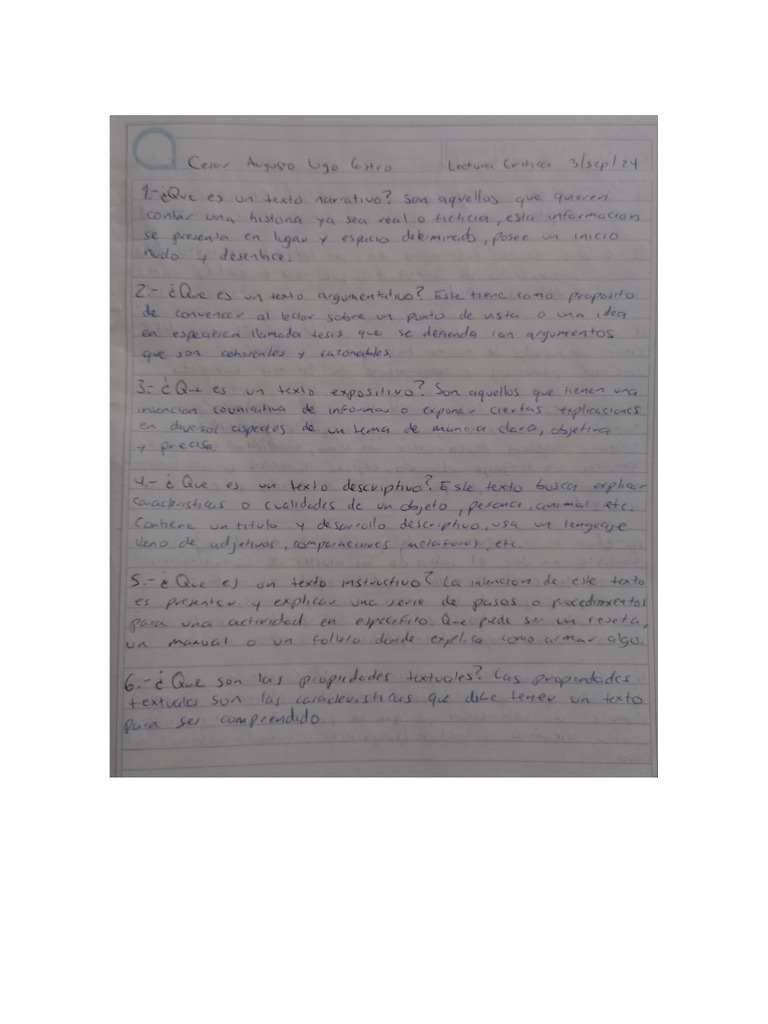 Cesar Augusto Lugo Castro Lectura Critica 3/sep/24
1.- ¿Que es un texto narrativo? Son aquellos que quieren
contar una historia ya sea real o ficticia, esta informacion
se presenta en lugar y espacio determinado, posee un inicio
nudo y desenlace.
2.- ¿Que es un texto argumentativo? Este tiene como proposito
de convencer al lector sobre un punto de vista o una idea
en especifica llamada tesis que se defienda con argumentos
que son coherentes y razonables.
3.- ¿Que es un texto expositivo? Son aquellos que tienen una
intencion comunicativa de informar o exponer ciertas explicaciones
en diversos aspectos de un tema de manera clara, objetiva
y precisa.
4.- ¿Que es un texto descriptivo? Este texto busca explicar
caracteristicas o cualidades de un objeto, persona, animal, etc.
Contiene un titulo y desarrollo descriptivo, usa un lenguaje
lleno de adjetivos, comparaciones, metaforas, etc.
5.- ¿Que es un texto instructivo? La intencion de este texto
es presentar y explicar una serie de pasos o procedimientos
para una actividad en especifico. Que puede ser un reseta,
un manual o un folleto donde explica como armar algo.
6.- ¿Que son las propiedades textuales? Las propiedades
textuales son las caracteristicas que debe tener un texto
para ser comprendido.